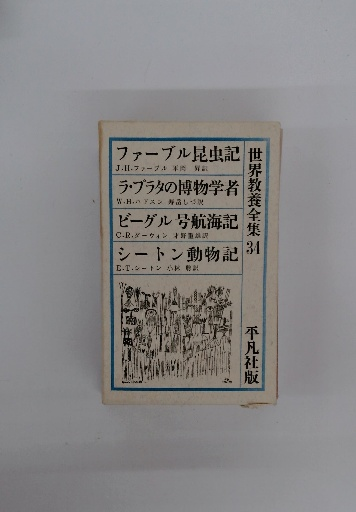 ファーブル昆虫記
J.H.ファーブル 平岡 昇訳
ラ・プラタの博物学者
W.H.ハドスン 岩田しづ訳
ビーグル号航海記
C.R.ダーウィン
シートン動物記
E.T.シートン 小林 訳
世界教養全集34
平凡社版